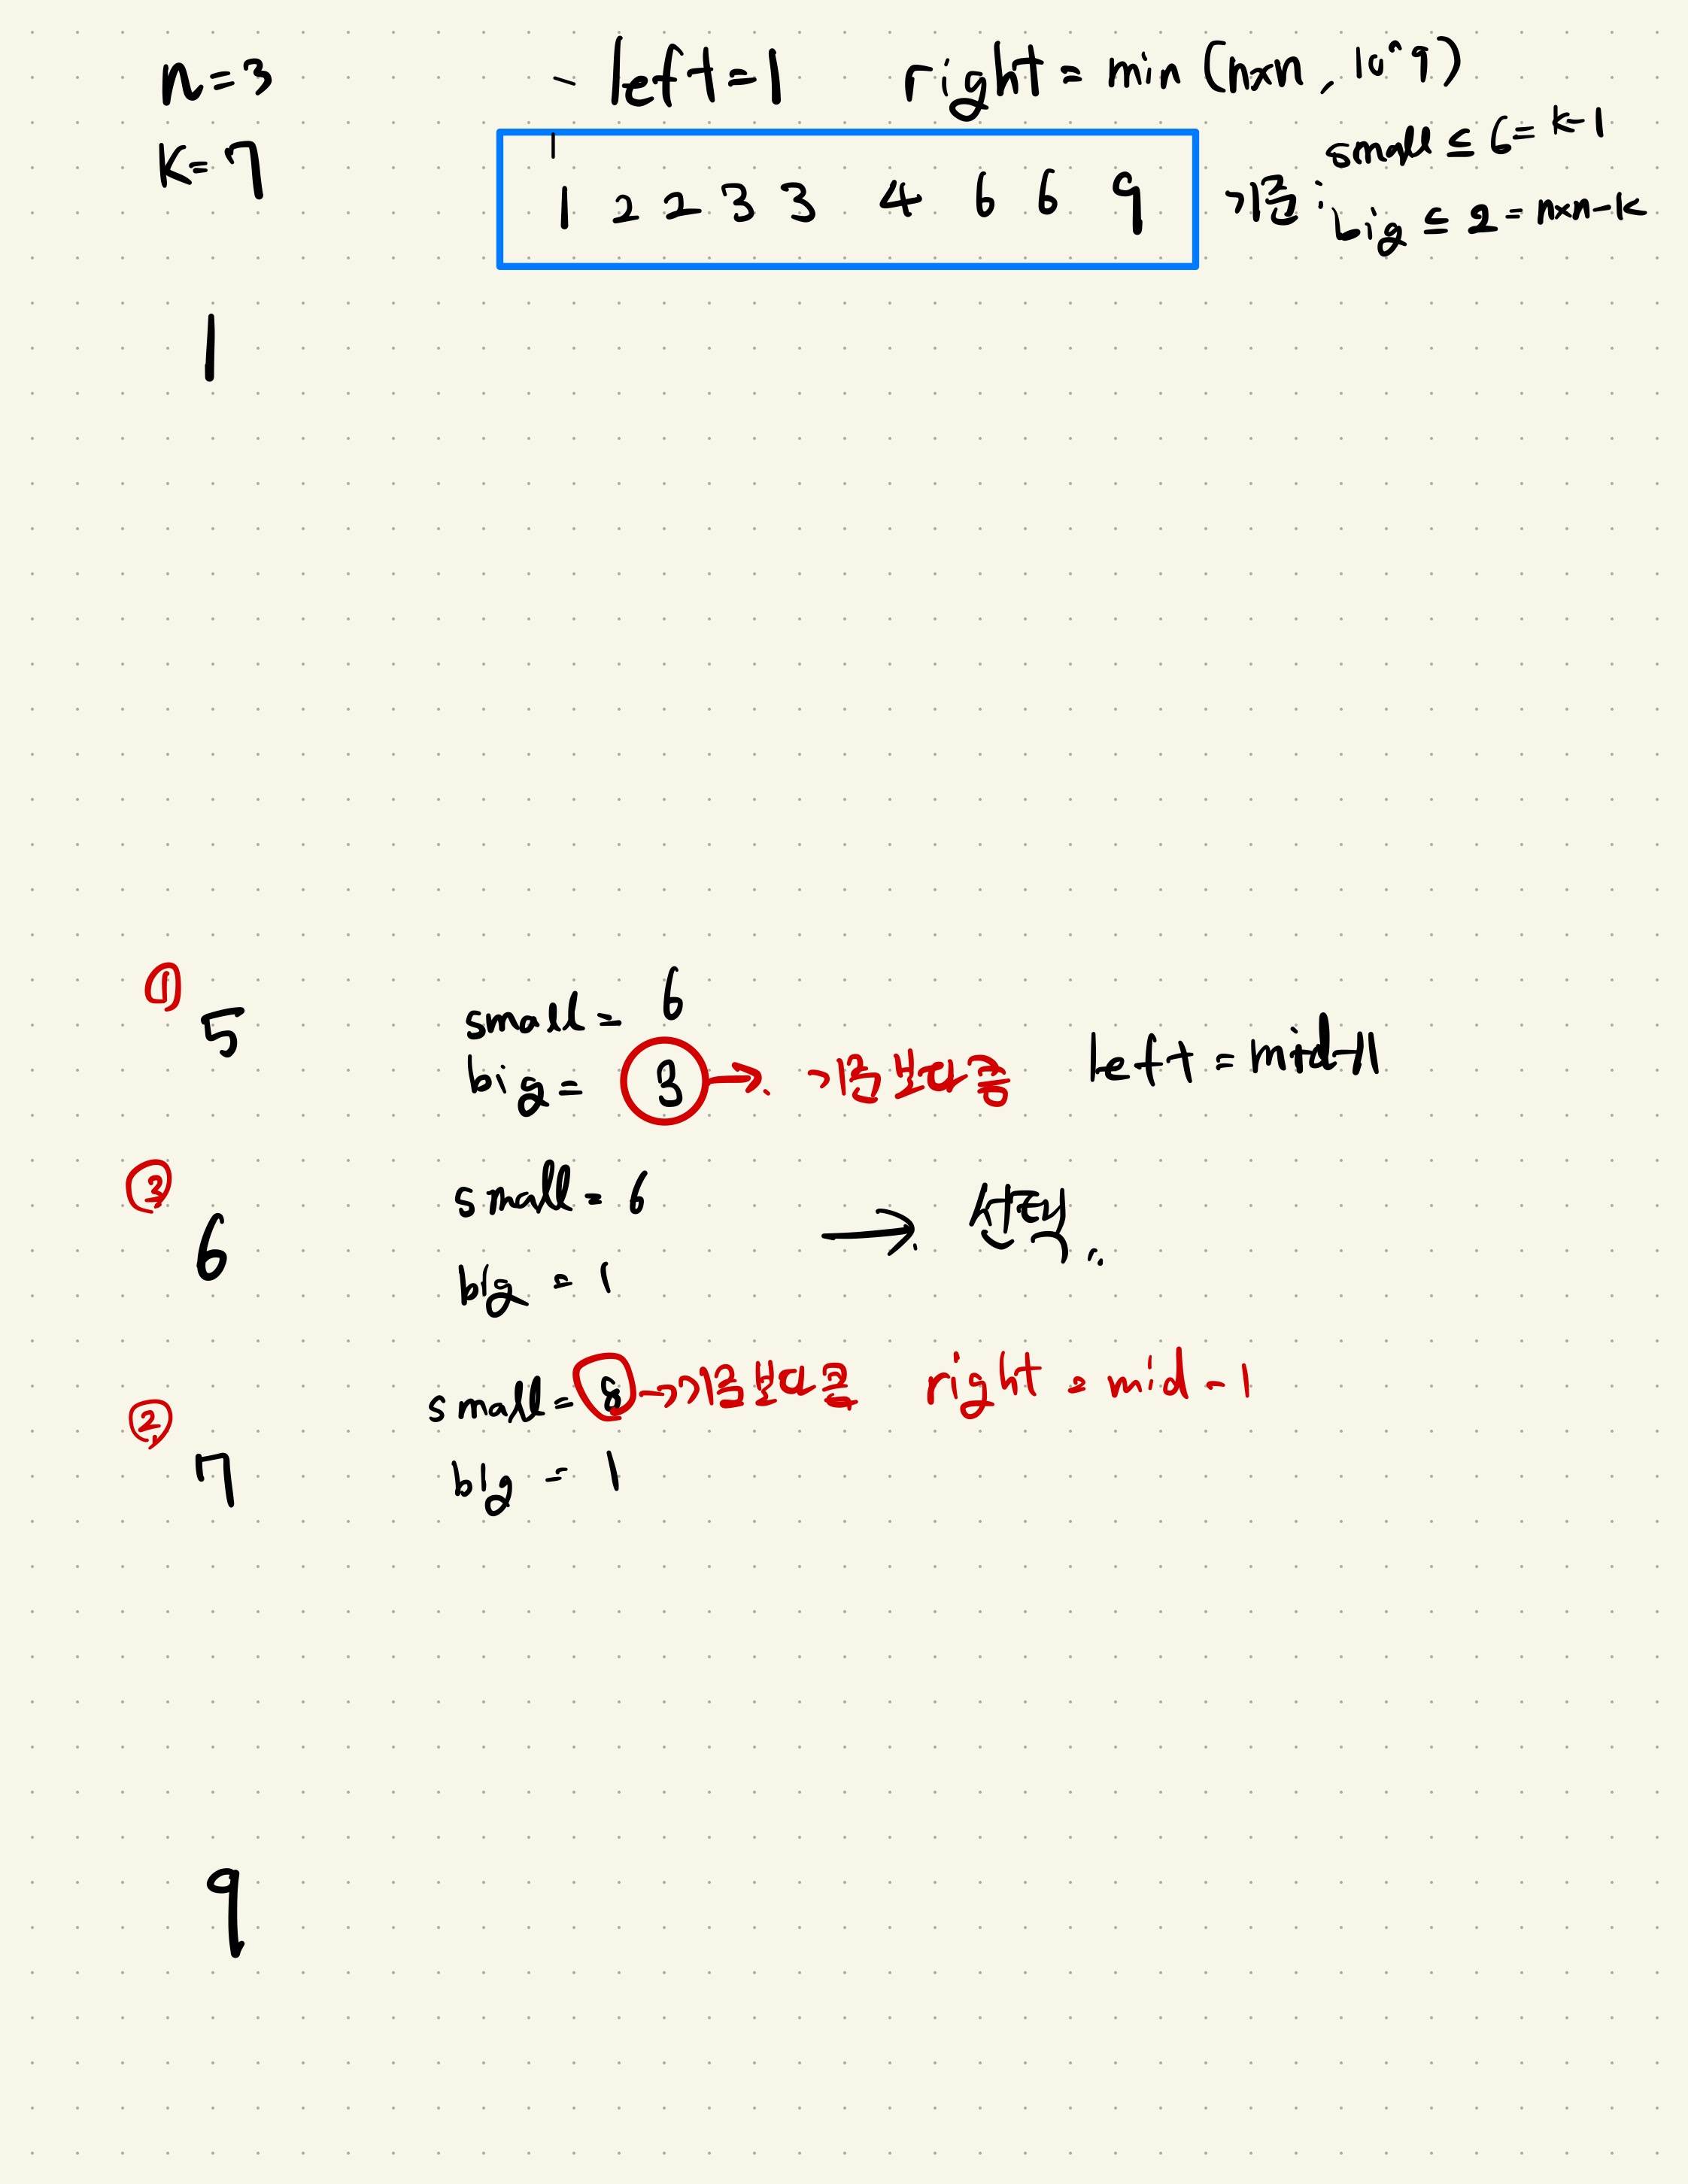 n=3 - left=1 right= min (n×n, 10^9)
K=7
1 2 2 3 3 4 6 6 9
기준: small ≤ 6 = k-1
big ≤ 2 = n×n-k
1
① 5 small = 6
big = 3 → 기준보다 큼 left = mid+1
③ 6 small = 6 →
big = 1
② 7 small = 8 → 기준보다 큼 right = mid - 1
big = 1
9